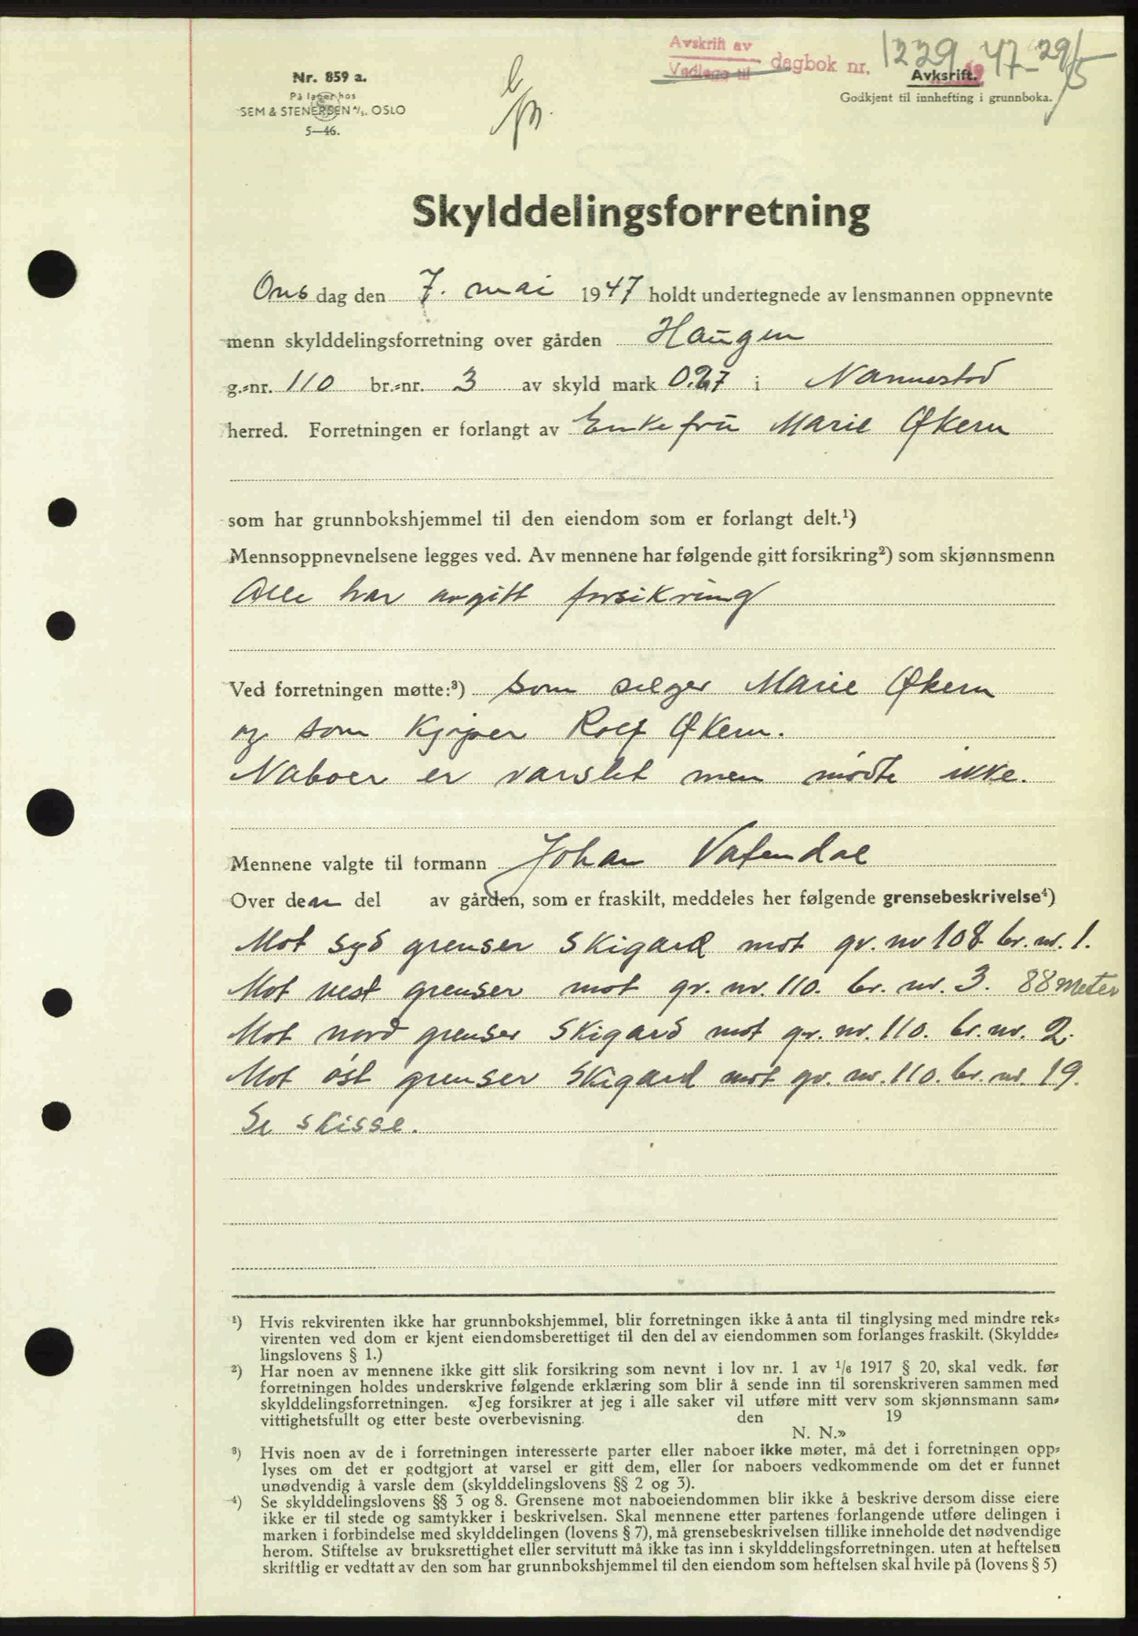 Avskrift av
Vedlegg til dagbok nr. 1229 1947 - 29/5
Avkskrift.
Godkjent til innhefting i grunnboka.
Nr. 859 a.
På lager hos
SEM & STENERSEN A/S. OSLO
5—46.
Skylddelingsforretning
Ons dag den 7. mai 1947 holdt undertegnede av lensmannen oppnevnte
menn skylddelingsforretning over gården Haugen
g.-nr. 110 br.-nr. 3 av skyld mark 0.27 i Nannestad
herred. Forretningen er forlangt av Enkefru Marie Økern
som har grunnbokshjemmel til den eiendom som er forlangt delt.¹)
Mennsoppnevnelsene legges ved. Av mennene har følgende gitt forsikring²) som skjønnsmenn
Alle har avgitt forsikring
Ved forretningen møtte:³) som selger Marie Økern
og som Kjøper Rolf Økern.
Naboer er varslet men mødte ikke.
Mennene valgte til formann Johan Vatendal
Over den del av gården, som er fraskilt, meddeles her følgende grensebeskrivelse⁴)
Mot syd grenser Skigard mot gr. nr 108 br. nr. 1.
Mot vest grenser mot gr. nr. 110. br. nr. 3. 88 meter
Mot nord grenser Skigard mot gr. nr. 110. br. nr. 2.
Mot øst grenser Skigard mot gr. nr. 110. br. nr. 19.
Se skisse.
¹) Hvis rekvirenten ikke har grunnbokshjemmel, blir forretningen ikke å anta til tinglysing med mindre rek-
virenten ved dom er kjent eiendomsberettiget til den del av eiendommen som forlanges fraskilt. (Skyldde-
lingslovens § 1.)
²) Har noen av mennene ikke gitt slik forsikring som nevnt i lov nr. 1 av 1/6 1917 § 20, skal vedk. før
forretningen holdes underskrive følgende erklæring som blir å sende inn til sorenskriveren sammen med
skylddelingsforretningen. «Jeg forsikrer at jeg i alle saker vil utføre mitt verv som skjønnsmann sam-
vittighetsfullt og etter beste overbevisning. den 19
N. N.»
³) Hvis noen av de i forretningen interesserte parter eller naboer ikke møter, må det i forretningen opp-
lyses om det er godtgjort at varsel er gitt dem, eller for naboers vedkommende om det er funnet
unødvendig å varsle dem (skylddelingslovens §§ 2 og 3).
⁴) Se skylddelingslovens §§ 3 og 8. Grensene mot naboeiendommen blir ikke å beskrive dersom disse eiere
ikke er til stede og samtykker i beskrivelsen. Skal mennene etter partenes forlangende utføre delingen i
marken i forbindelse med skylddelingen (lovens § 7), må grensebeskrivelsen tillike inneholde det nødvendige
herom. Stiftelse av bruksrettighet eller servitutt må ikke tas inn i skylddelingsforretningen. uten at heftelsen
skriftlig er vedtatt av den som har grunnbokshjemmel til den eiendom som heftelsen skal hvile på (lovens § 5)